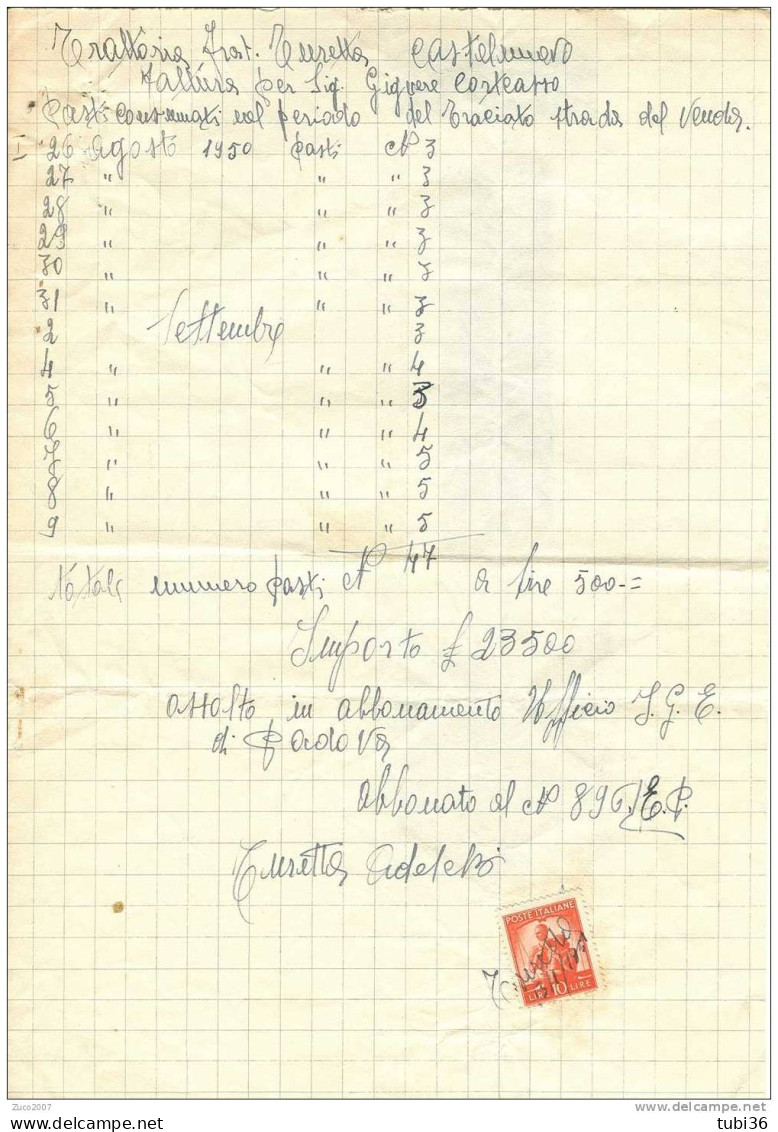 Trattoria Frat. Turetta Castelnuovo
Fattura per Sig. Giovere
Pasti consumati nel periodo del Traciato strada del Venda.
26 Agosto 1950 Pasti N 3
27 " " " 3
28 " " " 3
29 " " " 3
30 " " " 3
31 " " " 3
2 Settembre 3
4 " " " 4
5 " " " 3
6 " " " 4
7 " " " 5
8 " " " 5
9 " " " 5
Totale numero Pasti N 47 a lire 500-=
Importo £ 23500
assolto in abbonamento Ufficio I.G.E.
di Padova
abbonato al N 896
Turetta
POSTE ITALIANE
Turetta
LIRE 10 LIRE
Zuco2007
delcampe.net
tubi36